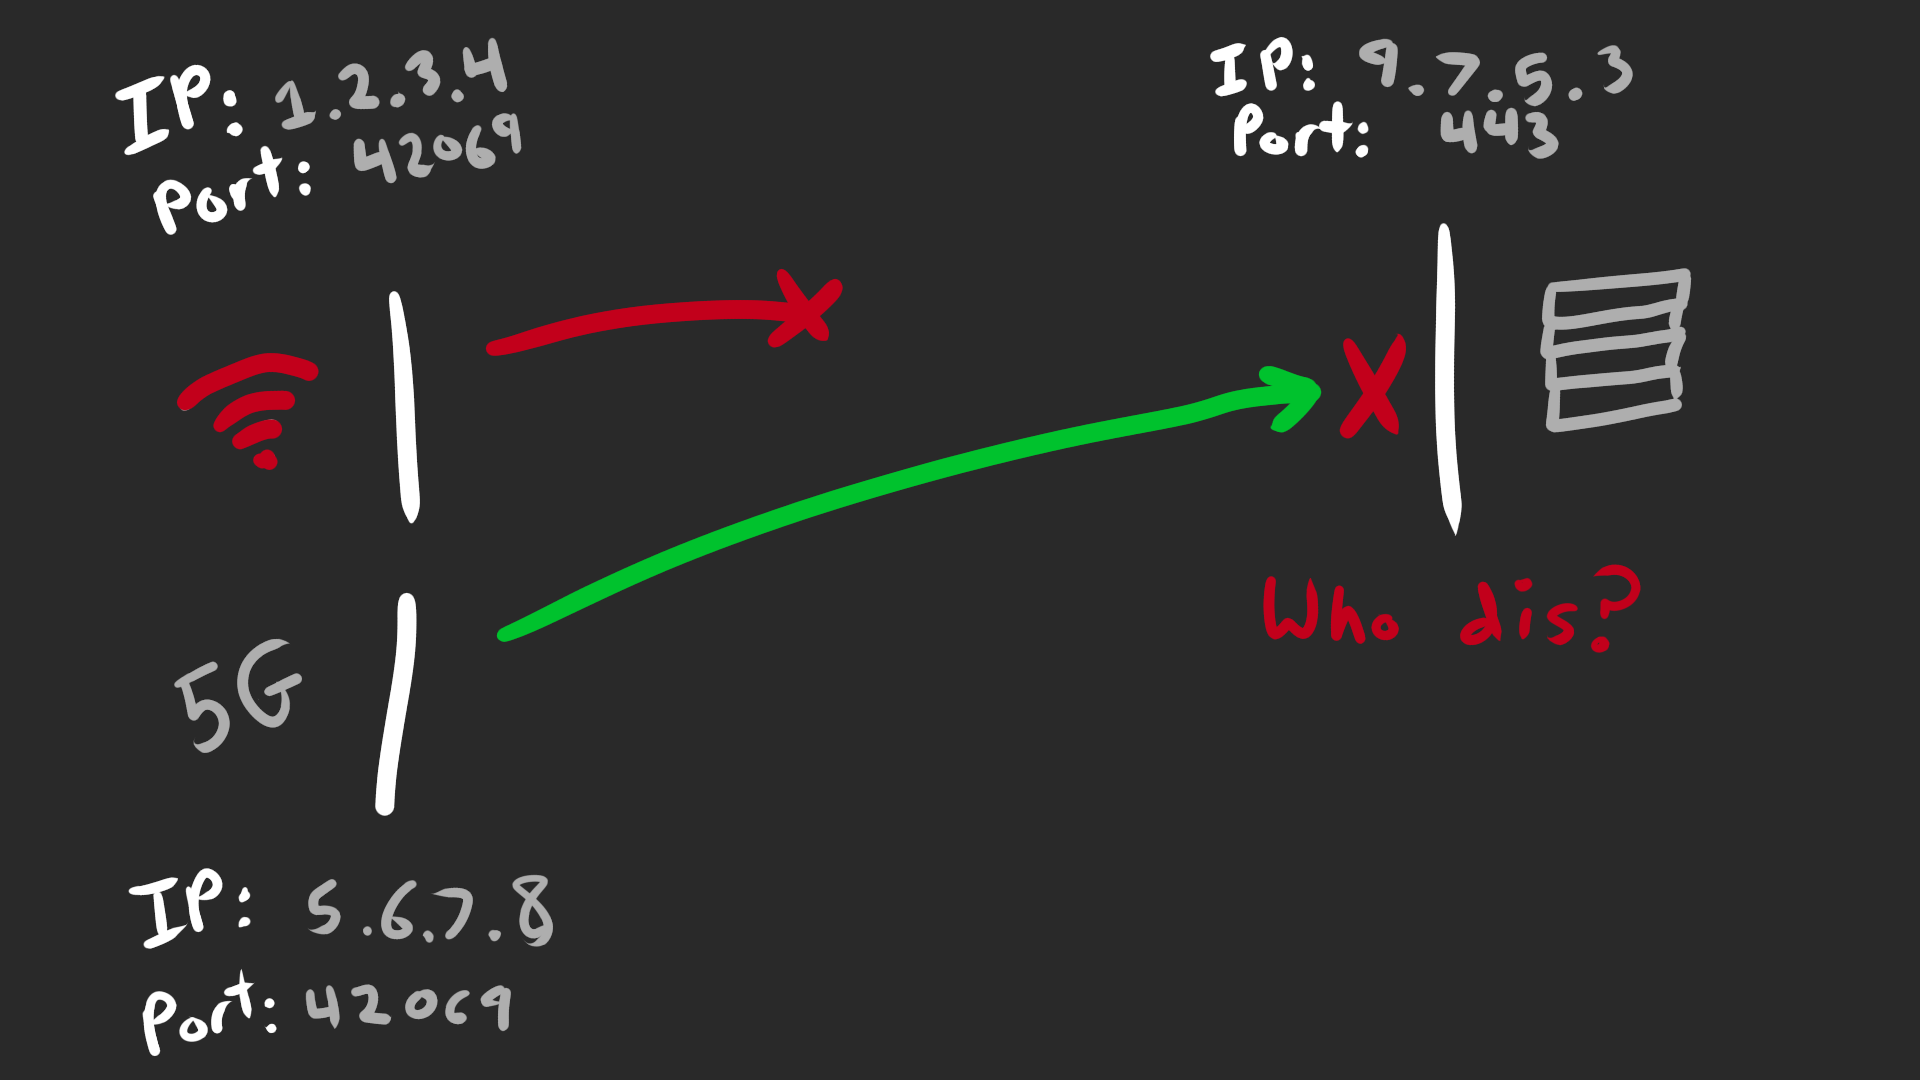 IP: 1.2.3.4
Port: 42069
IP: 9.7.5.3
Port: 443
5G
Who dis?
IP: 5.6.7.8
Port: 42069